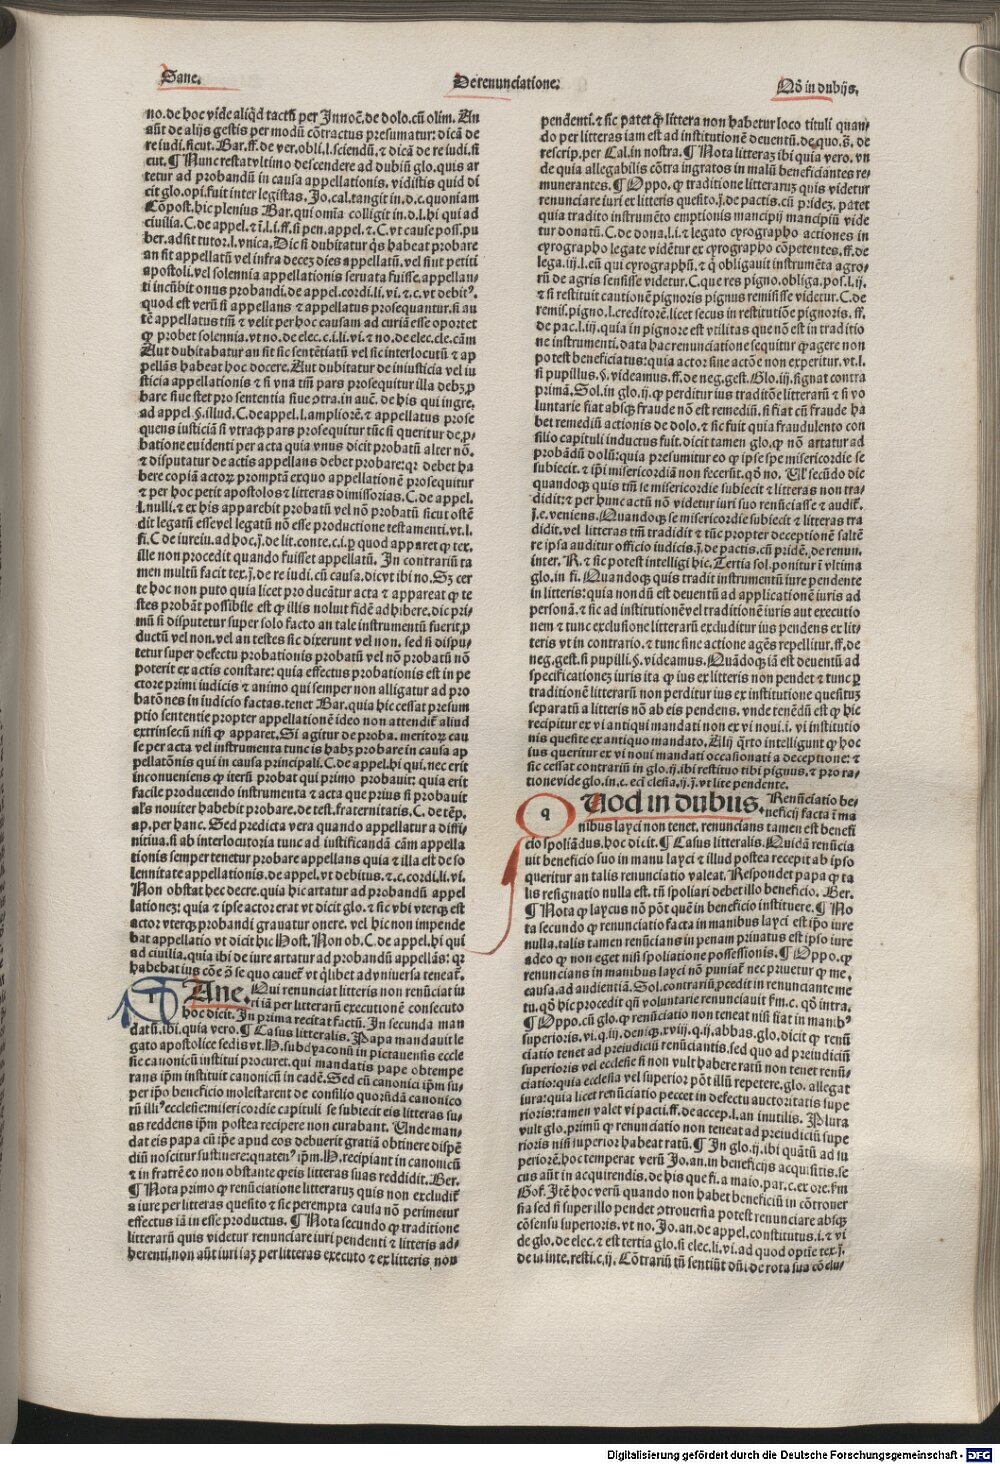 Sane.
De renunciatione.
Nõ in dubijs.
no. de hoc vide aliq̃d tactũ per Innoc̃. de dolo. cũ olim. An
aũt de alijs gestis per modũ cõtractus presumatur: dicã de
re iudi. sicut. Bar. ff. de ver. obli. l. sciendũ, ⁊ dicã de re iudi. si
cut. ¶ Nunc restat vltimo descendere ad dubiũ glo. quis ar
tetur ad probandũ in causa appellationis. vidistis quid di
cit glo. opi. fuit inter legistas. Jo. cal. tangit in .d. c. quoniam
Cõpost. hic plenius Bar. qui omia colligit in .d. l. hi qui ad
ciuilia. C. de appel. ⁊ ĩ. l. i. ff. si pen. appel. ⁊ C. vt cause post. pu
ber. adsit tutor. l. vnica. Dic si dubitatur q̃s habeat probare
an sit appellatũ vel infra decez dies appellatũ. vel fiut petiti
apostoli. vel solennia appellationis seruata fuisse. appellan-
ti incũbit onus probandi. de appel. cordi. li. vi. ⁊ c. vt debitꝰ.
quod est verũ si appellans ⁊ appellatus prosequantur. si au
tẽ appellatus tm̃ ⁊ velit per hoc causam ad curiã esse oportet
ꝙ probet solennia. vt no. de elec. c. i. li. vi. ⁊ no. de elec. cle. cãm
Aut dubitabatur an sit sic sentẽtiatũ vel sic interlocutũ ⁊ ap
pellãs habeat hoc docere. Aut dubitatur de iniusticia vel iu
sticia appellationis ⁊ si vna tm̃ pars prosequitur illa debz ꝓ
bare siue stet pro sententia siue ꝯtra. in aucẽ. de his qui ingre.
ad appel. §. illud. C. de appel. l. ampliorẽ. ⁊ appellatus prose
quens iusticiã si vtraqꝫ pars prosequitur tũc si queritur de p-
batione euidenti per acta quia vnus dicit probatũ alter nõ.
⁊ disputatur de actis appellans debet probare: qr debet ha
bere copiã actoꝝ promptã exquo appellationẽ prosequitur
⁊ per hoc petit apostolos ⁊ litteras dimissorias. C. de appel.
l. nulli. ⁊ ex his apparebit probatũ vel nõ probatũ sicut ostẽ
dit legatũ esse vel legatũ nõ esse productione testamenti. vt. l.
fi. C de iureiu. ad hoc. j̃. de lit. conte. c. i. p quod apparet ꝙ tex.
ille non procedit quando fuisset appellatũ. In contrariũ ta
men multũ facit tex. j̃. de re iudi. cũ causa. dicvt ibi no. Sz cer
te hoc non puto quia licet producãtur acta ⁊ appareat ꝙ te
stes probãt possibile est ꝙ illis noluit fidẽ adhibere. dic pri-
mũ si disputetur super solo facto an tale instrumentũ fuerit p
ductũ vel non. vel an testes sic dixerunt vel non. sed si dispu-
tetur super defectu probationis probatũ vel nõ probatũ nõ
poterit ex actis constare: quia effectus probationis est in pe
ctore primi iudicis ⁊ animo qui semper non alligatur ad pro
batões in iudicio factas. tenet Bar. quia hic cessat presum
ptio sententie propter appellationẽ ideo non attendiẽ aliud
extrinsecũ nisi ꝙ apparet. Si agitur de proba. meritoꝝ cau
se per acta vel instrumenta tunc is habz probare in causa ap
pellatõnis qui in causa principali. C. de appel. hi qui. nec erit
inconueniens ꝙ iterũ probat qui primo probauit: quia erit
facile producendo instrumenta ⁊ acta que prius si probauit
al's nouiter habebit probare. de test. fraternitatis. C. de tẽp.
ap. per hanc. Sed predicta vera quando appellatur a diffi-
nitiua. si ab interlocutoria tunc ad iustificandã cãm appella
tionis semper tenetur probare appellans quia ⁊ illa est de so
lennitate appellationis. de appel. vt debitus. ⁊ c. cordi. li. vi.
Non obstat hec decre. quia hic artatur ad probandũ appel
lationez: quia ⁊ ipse actor erat vt dicit glo. ⁊ sic vbi vterqꝫ est
actor vterqꝫ probandi grauatur onere. vel hic non impende
bat appellatio vt dicit hic Host. Non ob. C. de appel. hi qui
ad ciuilia. quia ibi de iure artatur ad probandũ appellãs: qr
habebat ius cõe ꝯ̃ se quo cauet̃ vt q̃libet ad vniuersa teneat̃.
Ane. Qui renunciat litteris non renũciat iu
ri iã per litterarũ executionẽ consecuto
hoc dicit. In prima recitat factũ. In secunda man
datũ. ibi. quia vero. ¶ Casus litteralis. Papa mandauit le
gato apostolice sedis vt. H. subdyaconũ in pictauensi eccle
sie canonicũ institui procuret. qui mandatis pape obtempe
rans ip̃m instituit canonicũ in eadẽ. Sed cũ canonici ip̃m su-
per ip̃o beneficio molestarent de consilio quorũdã canonico
rũ illiꝰ ecclesie: misericordie capituli se subiecit eis litteras su-
as reddens ip̃m postea recipere non curabant. Unde man-
dat eis papa cũ ip̃e apud eos debuerit gratiã obtinere dispẽ
diũ nõ scitur sustinere: quatenꝰ ip̃m. H. recipiant in canonicũ
⁊ in fratrẽ eo non obstante ꝙ eis litteras suas reddidit. Ber.
¶ Nota primo ꝙ renũciatione litteraruz quis non excludit̃
a iure per litteras quesito ⁊ sic perempta causa nõ perimetur
effectus iã in esse productus. ¶ Nota secundo ꝙ traditione
litterarũ quis videtur renunciare iuri pendenti ⁊ litteris ad-
herenti. non aũt iuri iaz per litteras executo ⁊ ex litteris. non
pendenti. ⁊ sic patet ꝙ littera non habetur loco tituli quan-
do per litteras iam est ad institutionẽ deuentũ. de quo. s̃. de
rescrip. per Cal. in nostra. ¶ Nota litteraz ibi quia vero. vn
de quia allegabilis cõtra ingratos in malũ beneficiantes re-
munerantes. ¶ Oppo. ꝙ traditione litteraruz quis videtur
renunciare iuri et litteris quesito. j̃. de pactis. cũ pridez. patet
quia tradito instrumẽto emptionis mancipij mancipiũ vide
tur donatũ. C. de dona. l. i. ⁊ legato cyrographo actiones in
cyrographo legate vidẽtur ex cyrographo cõpetentes. ff. de
lega. iij. l. eũ qui cyrographũ. ⁊ q̃ obligauit instrumẽta agro-
rũ de agris sensisse videtur. C. que res pigno. obliga. pos. l. ij.
⁊ si restituit cautionẽ pignoris pignus remisisse videtur. C. de
remiss. pigno. l. creditorẽ. licet secus in restitutiõe pignoris. ff.
de pac. l. iij. quia in pignore est vtilitas que nõ est in traditio
ne instrumenti. data hac renunciatione sequitur ꝙ agere non
potest beneficiatus: quia actor sine actõe non experitur. vt. l.
si pupillus. §. videamus. ff. de neg. gest. Glo. iij. signat contra
primã. Sol. in glo. ij. ꝙ perditur ius traditõe litterarũ ⁊ si vo
luntarie fiat absqꝫ fraude nõ est remediũ. si fiat cũ fraude ha
bet remediũ actionis de dolo. ⁊ sic fuit quia fraudulento con
silio capituli inductus fuit. dicit tamen glo. ꝙ nõ artatur ad
probãdũ dolũ: quia presumitur eo ꝙ ipse spe misericordie se
subiecit. ⁊ ip̃i misericordiã non fecerũt. q̃õ no. Ul' secũdo dic
quandoqꝫ quis tm̃ se misericordie subiecit ⁊ litteras non tra-
didit: ⁊ per hunc actũ nõ videtur iuri suo renũciasse ⁊ audit̃.
j̃. e. veniens. Quandoqꝫ se misericordie subiecit ⁊ litteras tra
didit. vel litteras tm̃ tradidit ⁊ tũc propter deceptionẽ saltẽ
re ipsa auditur officio iudicis. j̃. de pactis. cũ pridẽ. de renun.
inter. R. ⁊ sic potest intelligi hic. Tertia sol. ponitur ĩ vltima
glo. in fi. Quandoqꝫ quis tradit instrumentũ iure pendente
in litteris: quia nondũ est deuentũ ad applicationẽ iuris ad
personã. ⁊ sic ad institutionẽ vel traditionẽ iuris aut executio
nem ⁊ tunc exclusione litterarũ excluditur ius pendens ex lit-
teris vt in contrario. ⁊ tunc sine actione agẽs repellitur. ff. de
neg. gest. si pupilli. §. videamus. Quãdoqꝫ iã est deuentũ ad
specificationez iuris ita ꝙ ius ex litteris non pendet ⁊ tunc p
traditionẽ litterarũ non perditur ius ex institutione quesituz
separatũ a litteris nõ ab eis pendens. vnde tenẽdũ est ꝙ hic
recipitur ex vi antiqui mandati non ex vi noui. i. vi institutio
nis quesite ex antiquo mandato. Alij q̃rto intelligunt ꝙ hoc
ius queritur ex vi noui mandati occasionati a deceptione: ⁊
sic cessat contrariũ in glo. ij. ibi restituo tibi pignus. ⁊ pro ra-
tione vide glo. in. c. eccl̃esia. ij. j̃. vt lite pendente.
q Uod in dubiis. Renũciatio be-
neficij facta ĩ ma
nibus layci non tenet. renuncians tamen est benefi
cio spoliãdus. hoc dicit. ¶ Casus litteralis. Quidã renũcia
uit beneficio suo in manu layci ⁊ illud postea recepit ab ipso
queritur an talis renunciatio valeat. Respondet papa ꝙ ta
lis resignatio nulla est. tñ spoliari debet illo beneficio. Ber.
¶ Nota ꝙ laycus nõ põt quẽ in beneficio instituere. ¶ No
ta secundo ꝙ renunciatio facta in manibus layci est ip̃o iure
nulla. talis tamen renũcians in penam priuatus est ipso iure
adeo ꝙ non eget nisi spoliatione possessionis. ¶ Oppo. ꝙ
renuncians in manibus layci nõ puniat̃ nec priuetur ꝙ me.
causa. ad audientiã. Sol. contrariũ ꝓcedit in renunciante me
tu. q̃õ hic procedit qñ voluntarie renunciauit fm. c. q̃õ intra.
¶ Oppo. cũ glo. ꝙ renũciatio non teneat nisi fiat in manibꝰ
superioris. vi. q. iij. deniqꝫ. xviij. q. ij. abbas. glo. dicit ꝙ renũ
ciatio tenet ad preiudiciũ renũciantis. sed quo ad preiudiciũ
superioris vel ecclesie si non vult habere ratũ non tenet renũ-
ciatio: quia ecclesia vel superior põt illũ repetere. glo. allegat
iura: quia licet renũciatio peccet in defectu auctoritatis supe
rioris: tamen valet vi pacti. ff. de accep. l. an inutilis. Plura
vult glo. primũ ꝙ renunciatio non teneat ad preiudiciũ supe
rioris nisi superior habeat ratũ. ¶ In glo. ij. ibi quãtũ ad su
periorẽ. hoc temperat verũ Jo. an. in beneficijs acquisitis. se
cus aũt in acquirendis. de his que fi. a maio. par. c. ex ore. fm
Gof. Itẽ hoc verũ quando non habet beneficiũ in cõtrouer
sia sed si super illo pendet ꝯtrouersia potest renunciare absqꝫ
cõsensu superioris. vt no. Jo. an. de appel. constitutus. i. ⁊ vi
de glo. de elec. ⁊ est tertia glo. si elec. li. vi. ad quod optie tex. j̃.
de in inte. resti. c. ij. Cõtrariũ tñ sentiũt dñi de rota sua cõclu-
Digitalisierung gefördert durch die Deutsche Forschungsgemeinschaft - DFG